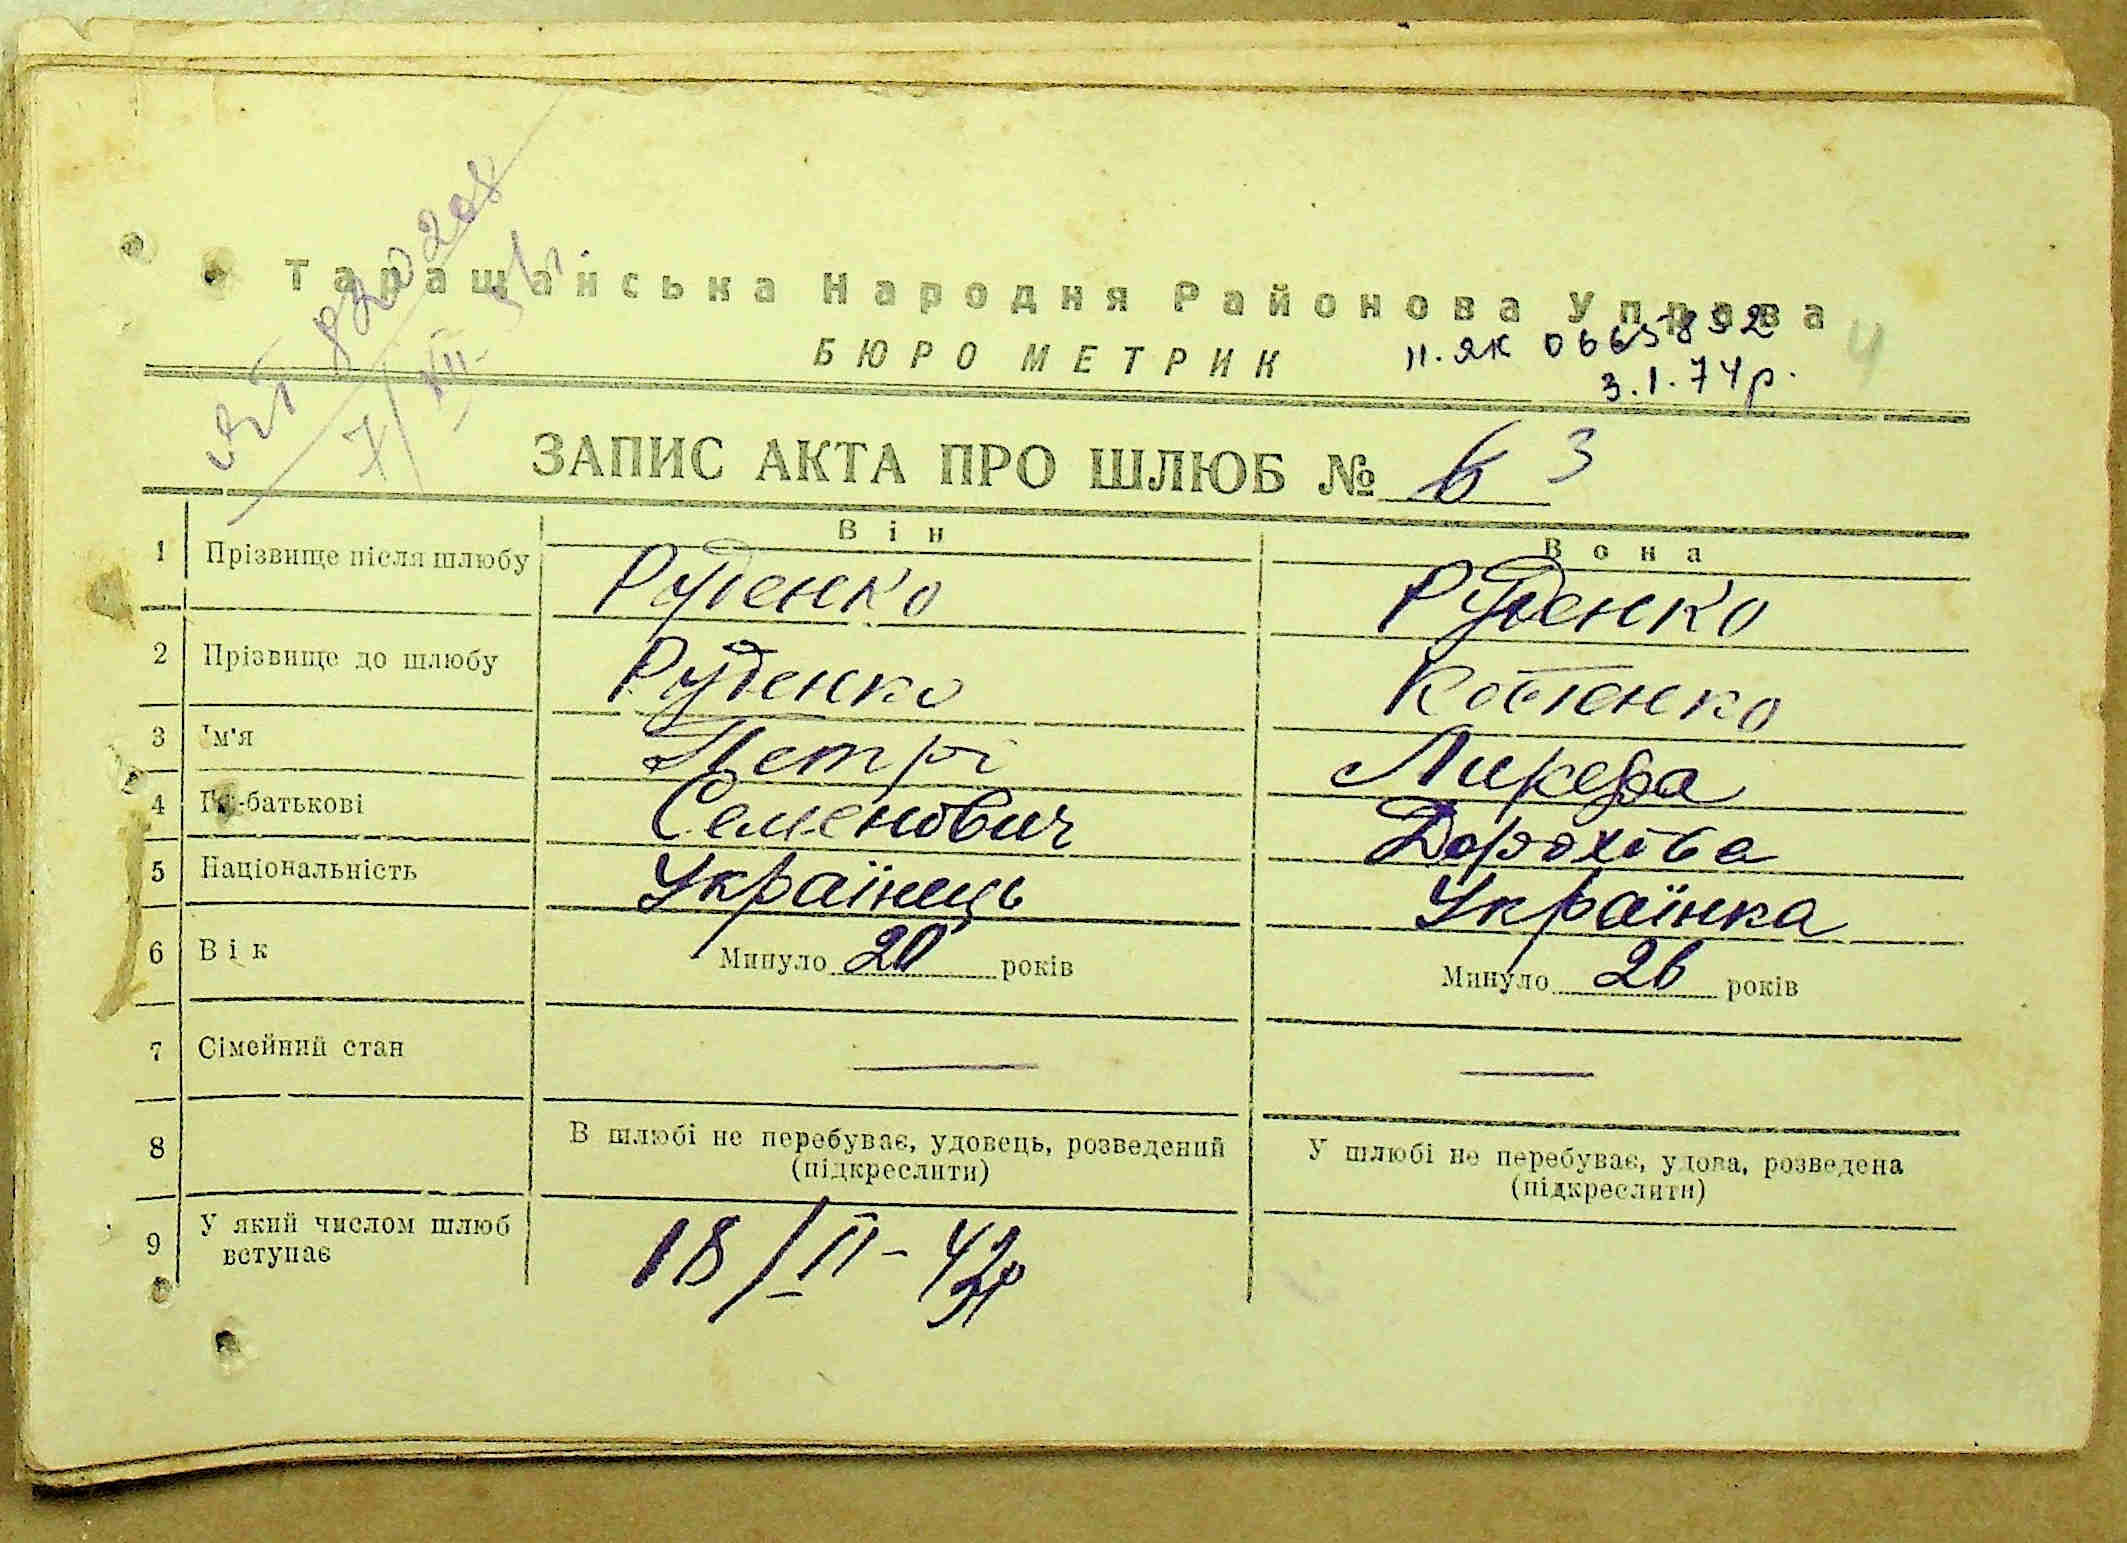 Таращанська Народня Районова Управа
БЮРО МЕТРИК
п. ЯК 0665832
3.1.74р.
4
ЗАПИС АКТА ПРО ШЛЮБ № 6 3
Він Вона
1 Прізвище після шлюбу Руденко Руденко
2 Прізвище до шлюбу Руденко Костенко
3 Ім'я Петро Ликера
4 По-батькові Семенович Дорохівна
5 Національність Українець Українка
6 Вік Минуло 20 років Минуло 26 років
7 Сімейний стан — —
8 В шлюбі не перебуває, удовець, розведений (підкреслити) У шлюбі не перебуває, удова, розведена (підкреслити)
9 У який числом шлюб вступає 18/II-42р